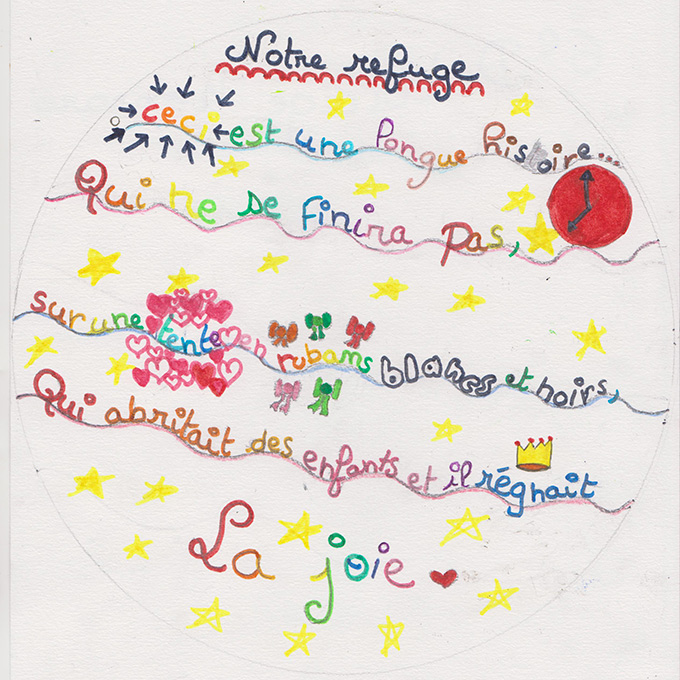 Notre refuge
ceci est une longue histoire...
Qui ne se finira pas,
sur une tente en rubans blancs et noirs,
Qui abritait des enfants et il régnait
La joie